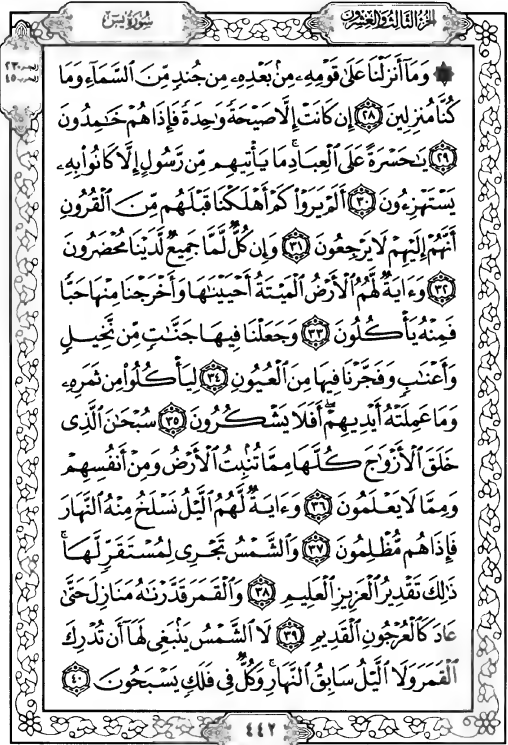 الجزء الثالث والعشرون
سورة يس
الجزء ٢٣
الحزب ٤٥
۞ وَمَآ أَنزَلْنَا عَلَىٰ قَوْمِهِۦ مِنۢ بَعْدِهِۦ مِن جُندٍ مِّنَ ٱلسَّمَآءِ وَمَا
كُنَّا مُنزِلِينَ ﴿٢٨﴾ إِن كَانَتْ إِلَّا صَيْحَةً وَٰحِدَةً فَإِذَا هُمْ خَـٰمِدُونَ
﴿٢٩﴾ يَـٰحَسْرَةً عَلَى ٱلْعِبَادِ ۚ مَا يَأْتِيهِم مِّن رَّسُولٍ إِلَّا كَانُوا۟ بِهِۦ
يَسْتَهْزِءُونَ ﴿٣٠﴾ أَلَمْ يَرَوْا۟ كَمْ أَهْلَكْنَا قَبْلَهُم مِّنَ ٱلْقُرُونِ
أَنَّهُمْ إِلَيْهِمْ لَا يَرْجِعُونَ ﴿٣١﴾ وَإِن كُلٌّ لَّمَّا جَمِيعٌ لَّدَيْنَا مُحْضَرُونَ
﴿٣٢﴾ وَءَايَةٌ لَّهُمُ ٱلْأَرْضُ ٱلْمَيْتَةُ أَحْيَيْنَـٰهَا وَأَخْرَجْنَا مِنْهَا حَبًّا
فَمِنْهُ يَأْكُلُونَ ﴿٣٣﴾ وَجَعَلْنَا فِيهَا جَنَّـٰتٍ مِّن نَّخِيلٍ
وَأَعْنَـٰبٍ وَفَجَّرْنَا فِيهَا مِنَ ٱلْعُيُونِ ﴿٣٤﴾ لِيَأْكُلُوا۟ مِن ثَمَرِهِۦ
وَمَا عَمِلَتْهُ أَيْدِيهِمْ ۖ أَفَلَا يَشْكُرُونَ ﴿٣٥﴾ سُبْحَـٰنَ ٱلَّذِى
خَلَقَ ٱلْأَزْوَٰجَ كُلَّهَا مِمَّا تُنۢبِتُ ٱلْأَرْضُ وَمِنْ أَنفُسِهِمْ
وَمِمَّا لَا يَعْلَمُونَ ﴿٣٦﴾ وَءَايَةٌ لَّهُمُ ٱلَّيْلُ نَسْلَخُ مِنْهُ ٱلنَّهَارَ
فَإِذَا هُم مُّظْلِمُونَ ﴿٣٧﴾ وَٱلشَّمْسُ تَجْرِى لِمُسْتَقَرٍّ لَّهَا ۚ
ذَٰلِكَ تَقْدِيرُ ٱلْعَزِيزِ ٱلْعَلِيمِ ﴿٣٨﴾ وَٱلْقَمَرَ قَدَّرْنَـٰهُ مَنَازِلَ حَتَّىٰ
عَادَ كَٱلْعُرْجُونِ ٱلْقَدِيمِ ﴿٣٩﴾ لَا ٱلشَّمْسُ يَنۢبَغِى لَهَآ أَن تُدْرِكَ
ٱلْقَمَرَ وَلَا ٱلَّيْلُ سَابِقُ ٱلنَّهَارِ ۚ وَكُلٌّ فِى فَلَكٍ يَسْبَحُونَ ﴿٤٠﴾
٤٤٢